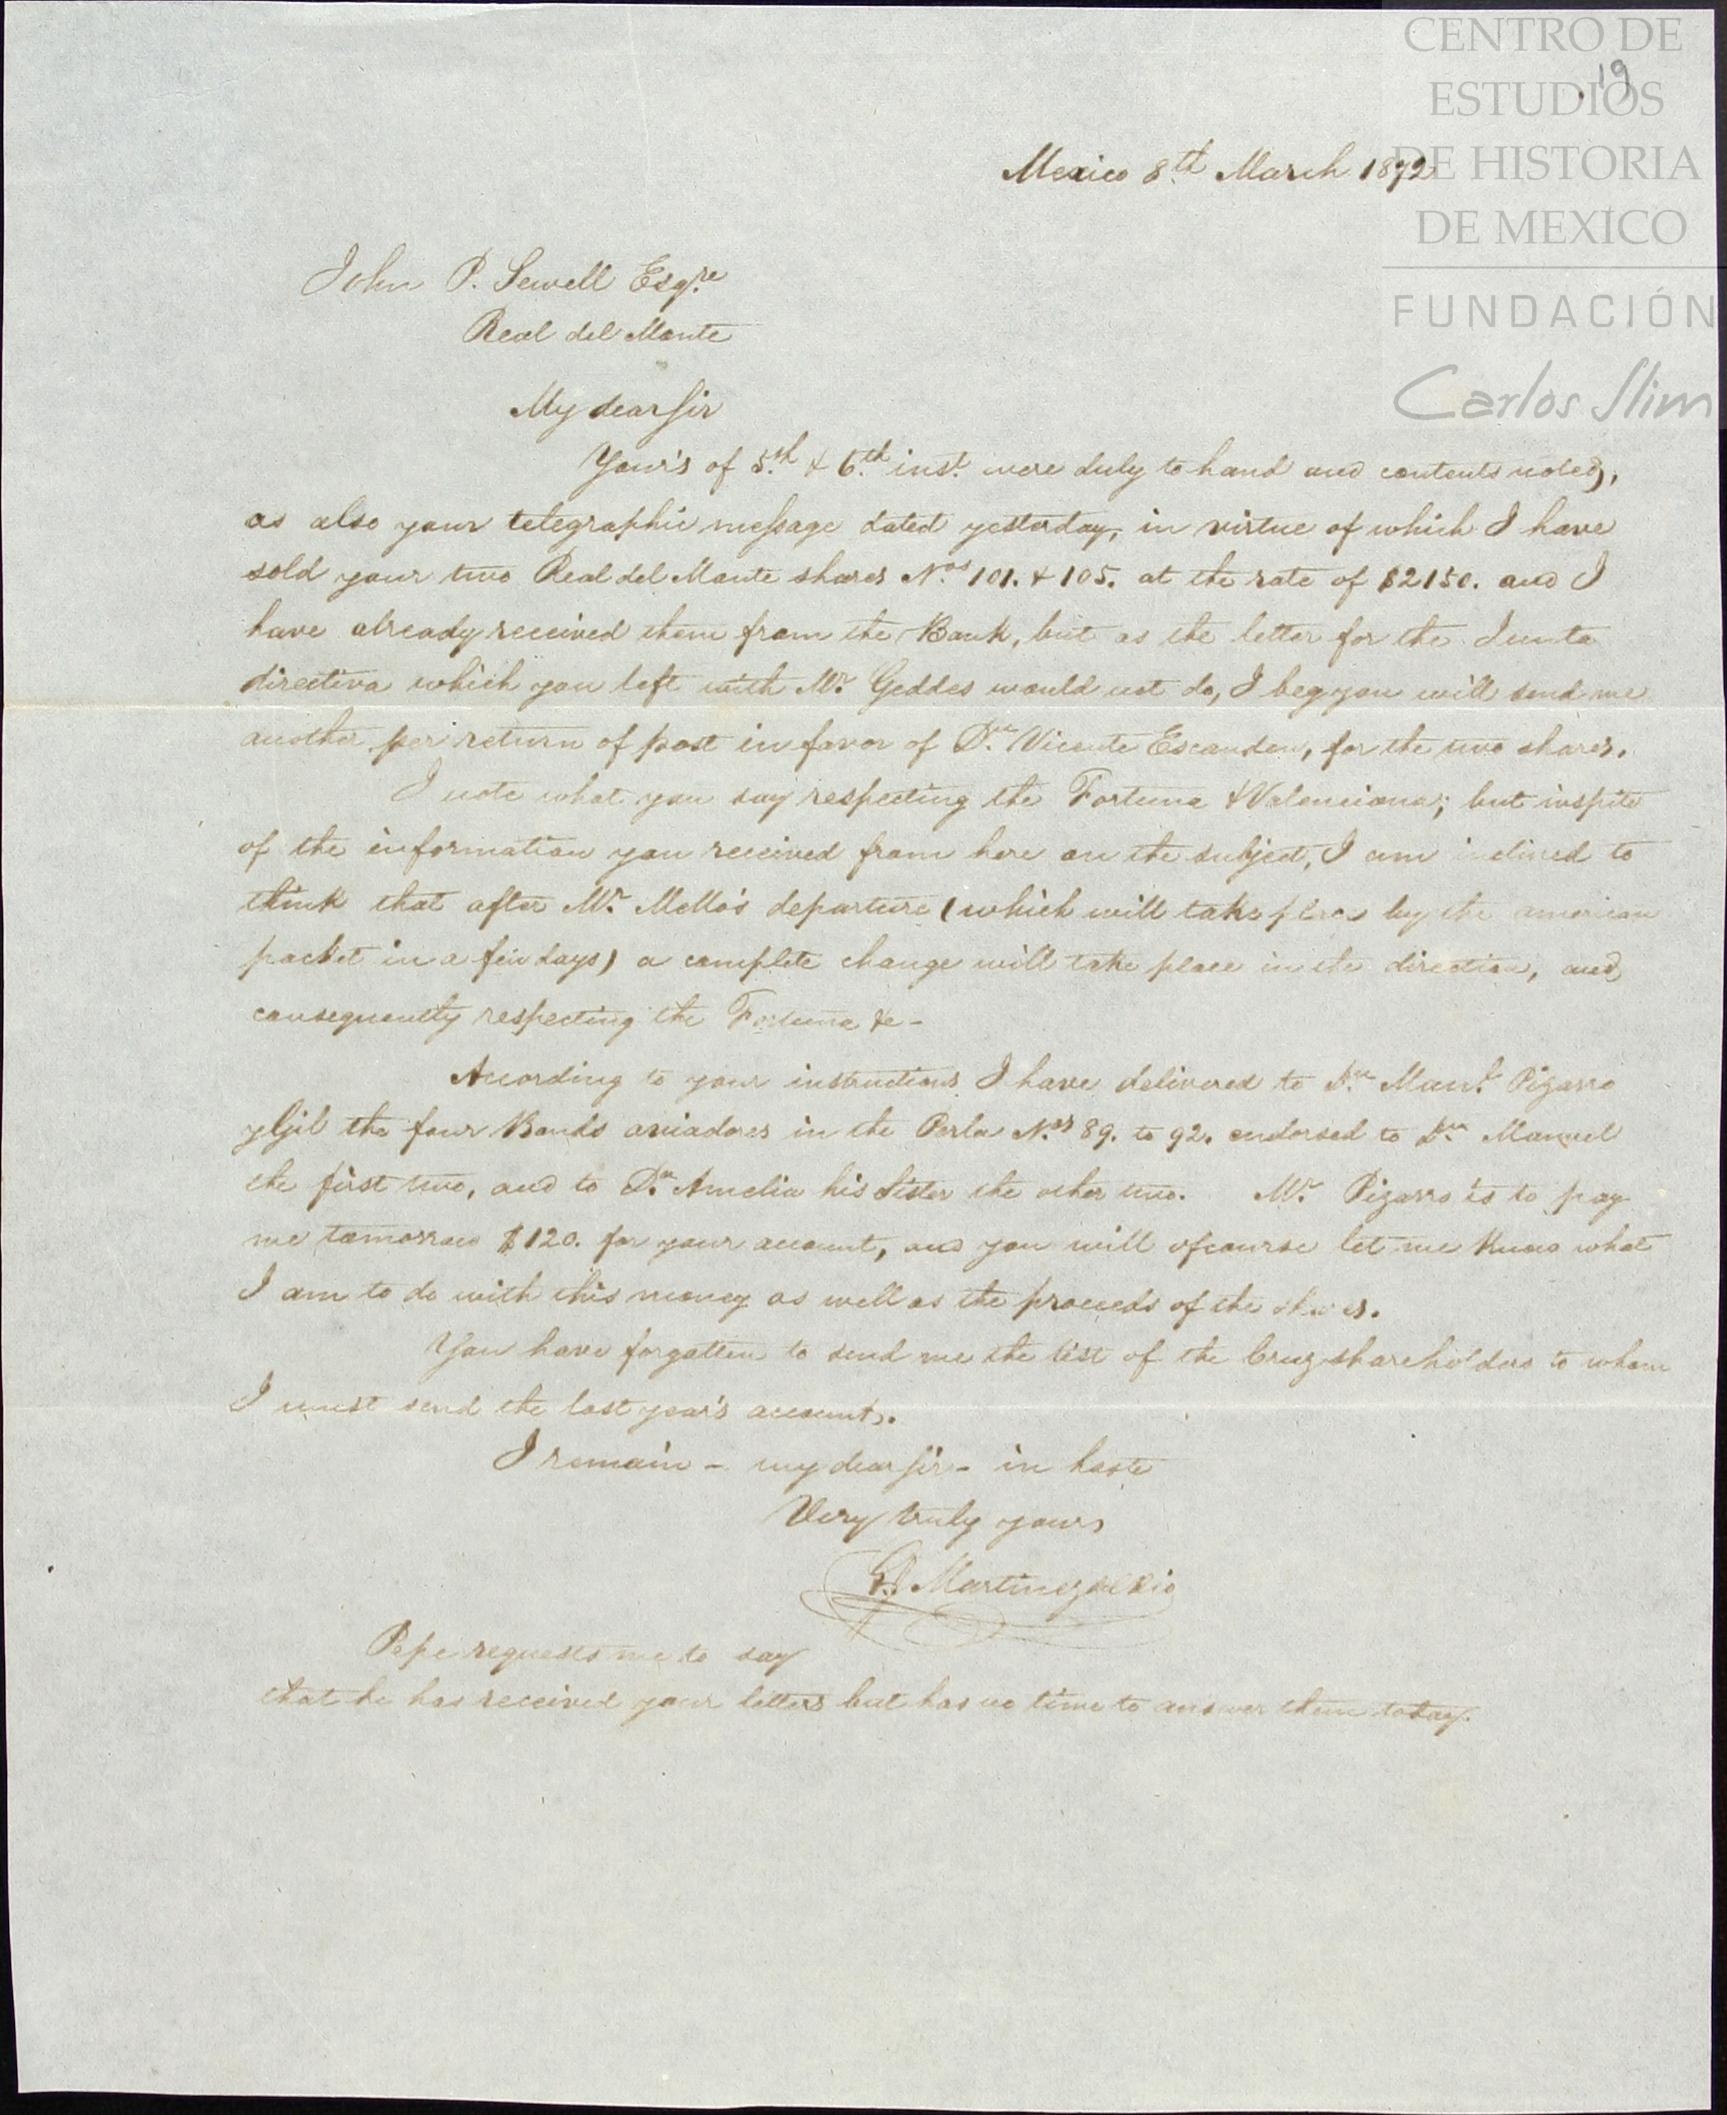 CENTRO DE
ESTUDIOS
DE HISTORIA
DE MEXICO
FUNDACIÓN
Carlos Slim
19
Mexico 8th March 1872
John P. Sewell Esqre
Real del Monte
My dear Sir
Your's of 5th & 6th inst. were duly to hand and contents noted,
as also your telegraphic message dated yesterday, in virtue of which I have
sold your two Real del Monte shares Nos 101. & 105. at the rate of $2150. and I
have already received them from the Bank, but as the letter for the Junta
directiva which you left with Mr. Geddes would not do, I beg you will send me
another per return of post in favor of Dn. Vicente Escandon, for the two shares.
I note what you say respecting the Fortuna & Valenciana; but inspite
of the information you received from here on the subject, I am inclined to
think that after Mr. Mello's departure (which will take place by the american
packet in a few days) a complete change will take place in the direction, and
consequently respecting the Fortuna &c -
According to your instructions I have delivered to Dn. Manl. Pizarro
y Gil the four Bonds aviadores in the Perla Nos 89. to 92. endorsed to Dn. Manuel
the first two, and to Da. Amelia his Sister the other two. Mr. Pizarro is to pay
me tomorrow $120. for your account, and you will ofcourse let me know what
I am to do with this money as well as the proceeds of the shares.
You have forgotten to send me the list of the Cruz shareholders to whom
I must send the last year's accounts.
I remain - my dear Sir - in haste
Very truly yours
Martinez del Rio
Pepe requests me to say
that he has received your letters but has no time to answer them today.